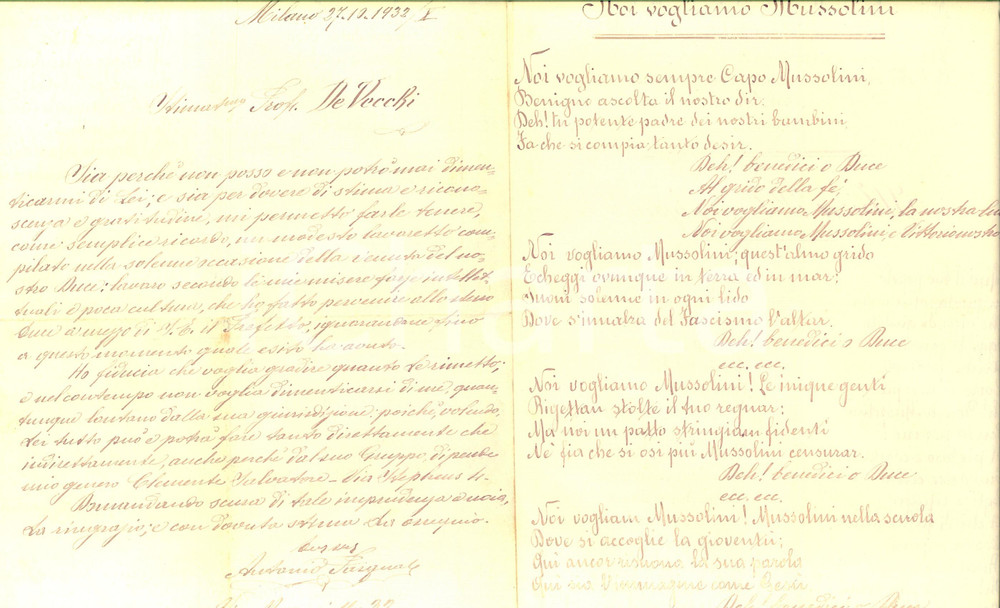 Milano 27.12.1932/I
Stimatmo Prof. De Vecchi
Sia perchè non posso e non potrò mai dimen-
ticarmi di Lei; e sia per dovere di stima e ricono-
scenza e gratitudine, mi permetto farle tenere,
come semplice ricordo, un modesto lavoretto com-
pilato nella solenne occasione della venuta del no-
stro Duce: lavoro secondo le mie misere forze intellet-
tuali e poca cultura, che ho fatto pervenire allo stesso
Duce a mezzo di S. E. il Prefetto, ignorandone fino
a questo momento quale esito ha avuto.
Ho fiducia che voglia gradire quanto Le rimetto;
e nel contempo non voglia dimenticarsi di me, quan-
tunque lontano dalla sua giurisdizione; poichè, volendo,
Lei tutto può e potrà fare tanto direttamente che
indirettamente, anche perchè dal suo Gruppo, dipende
mio genero Clemente Salvatore - Via
Domandando scusa di tale imprudenza e noia,
La ringrazio; e con dovuta stima La ossequio.
Antonio
Noi vogliamo Mussolini
Noi vogliamo sempre Capo Mussolini,
Benigno ascolta il nostro dir.
Deh! tu potente padre dei nostri bambini
Fa che si compia tanto desir.
Deh! benedici o Duce
Al grido della fè,
Noi vogliamo Mussolini, la nostra
Noi vogliamo Mussolini, e Vittorio
Noi vogliamo Mussolini; quest'almo grido
Echeggi ovunque in terra ed in mar;
Suoni solenne in ogni lido
Dove s'innalza del Fascismo l'altar.
Deh! benedici o Duce
ecc. ecc.
Noi vogliamo Mussolini! Le inique genti
Rigettan stolte il tuo regnar;
Ma noi un patto stringiam fidenti
Nè fia che si osi più Mussolini censurar.
Deh! benedici o Duce
ecc. ecc.
Noi vogliam Mussolini! Mussolini nella scuola
Dove si accoglie la gioventù;
Qui ancor risuona la sua parola
Qui sia l'immagine come Gesù
Deh! benedici o Duce